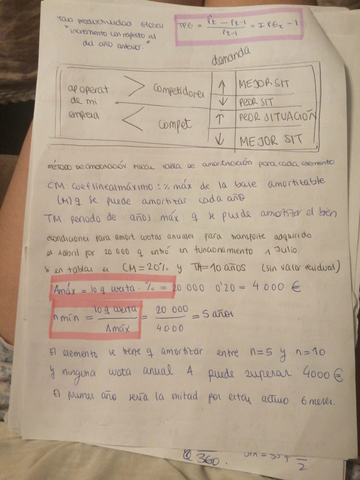 Tasa productividad global
"incremento con respecto al
del año anterior"
TPG = (Pt - Pt-1) / Pt-1 = IPGt - 1
demanda
ap operat de mi empresa
> Competidores
↑ MEJOR SIT
↓ PEOR SIT
< Compet
↑ PEOR SITUACIÓN
↓ MEJOR SIT
tabla de amortización para cada elemento
CM coef lineal máximo: % máx de la base amortizable
(M) q se puede amortizar cada año
TM periodo de años máx q se puede amortizar el bien
cuotas anuales para transporte adquirido
el 1 abril por 20 000 y entró en funcionamiento 1 Julio
si en tablas es CM = 20% y TM = 10 años (sin valor residual)
Amáx = · % = 20 000 · 0'20 = 4000 €
n mín = / Amáx = 20 000 / 4000 = 5 años
El elemento se tiene q amortizar entre n=5 y n=10
y ninguna cuota anual A puede superar 4000 €
El primer año sería la mitad por estar activo 6 meses.
360.